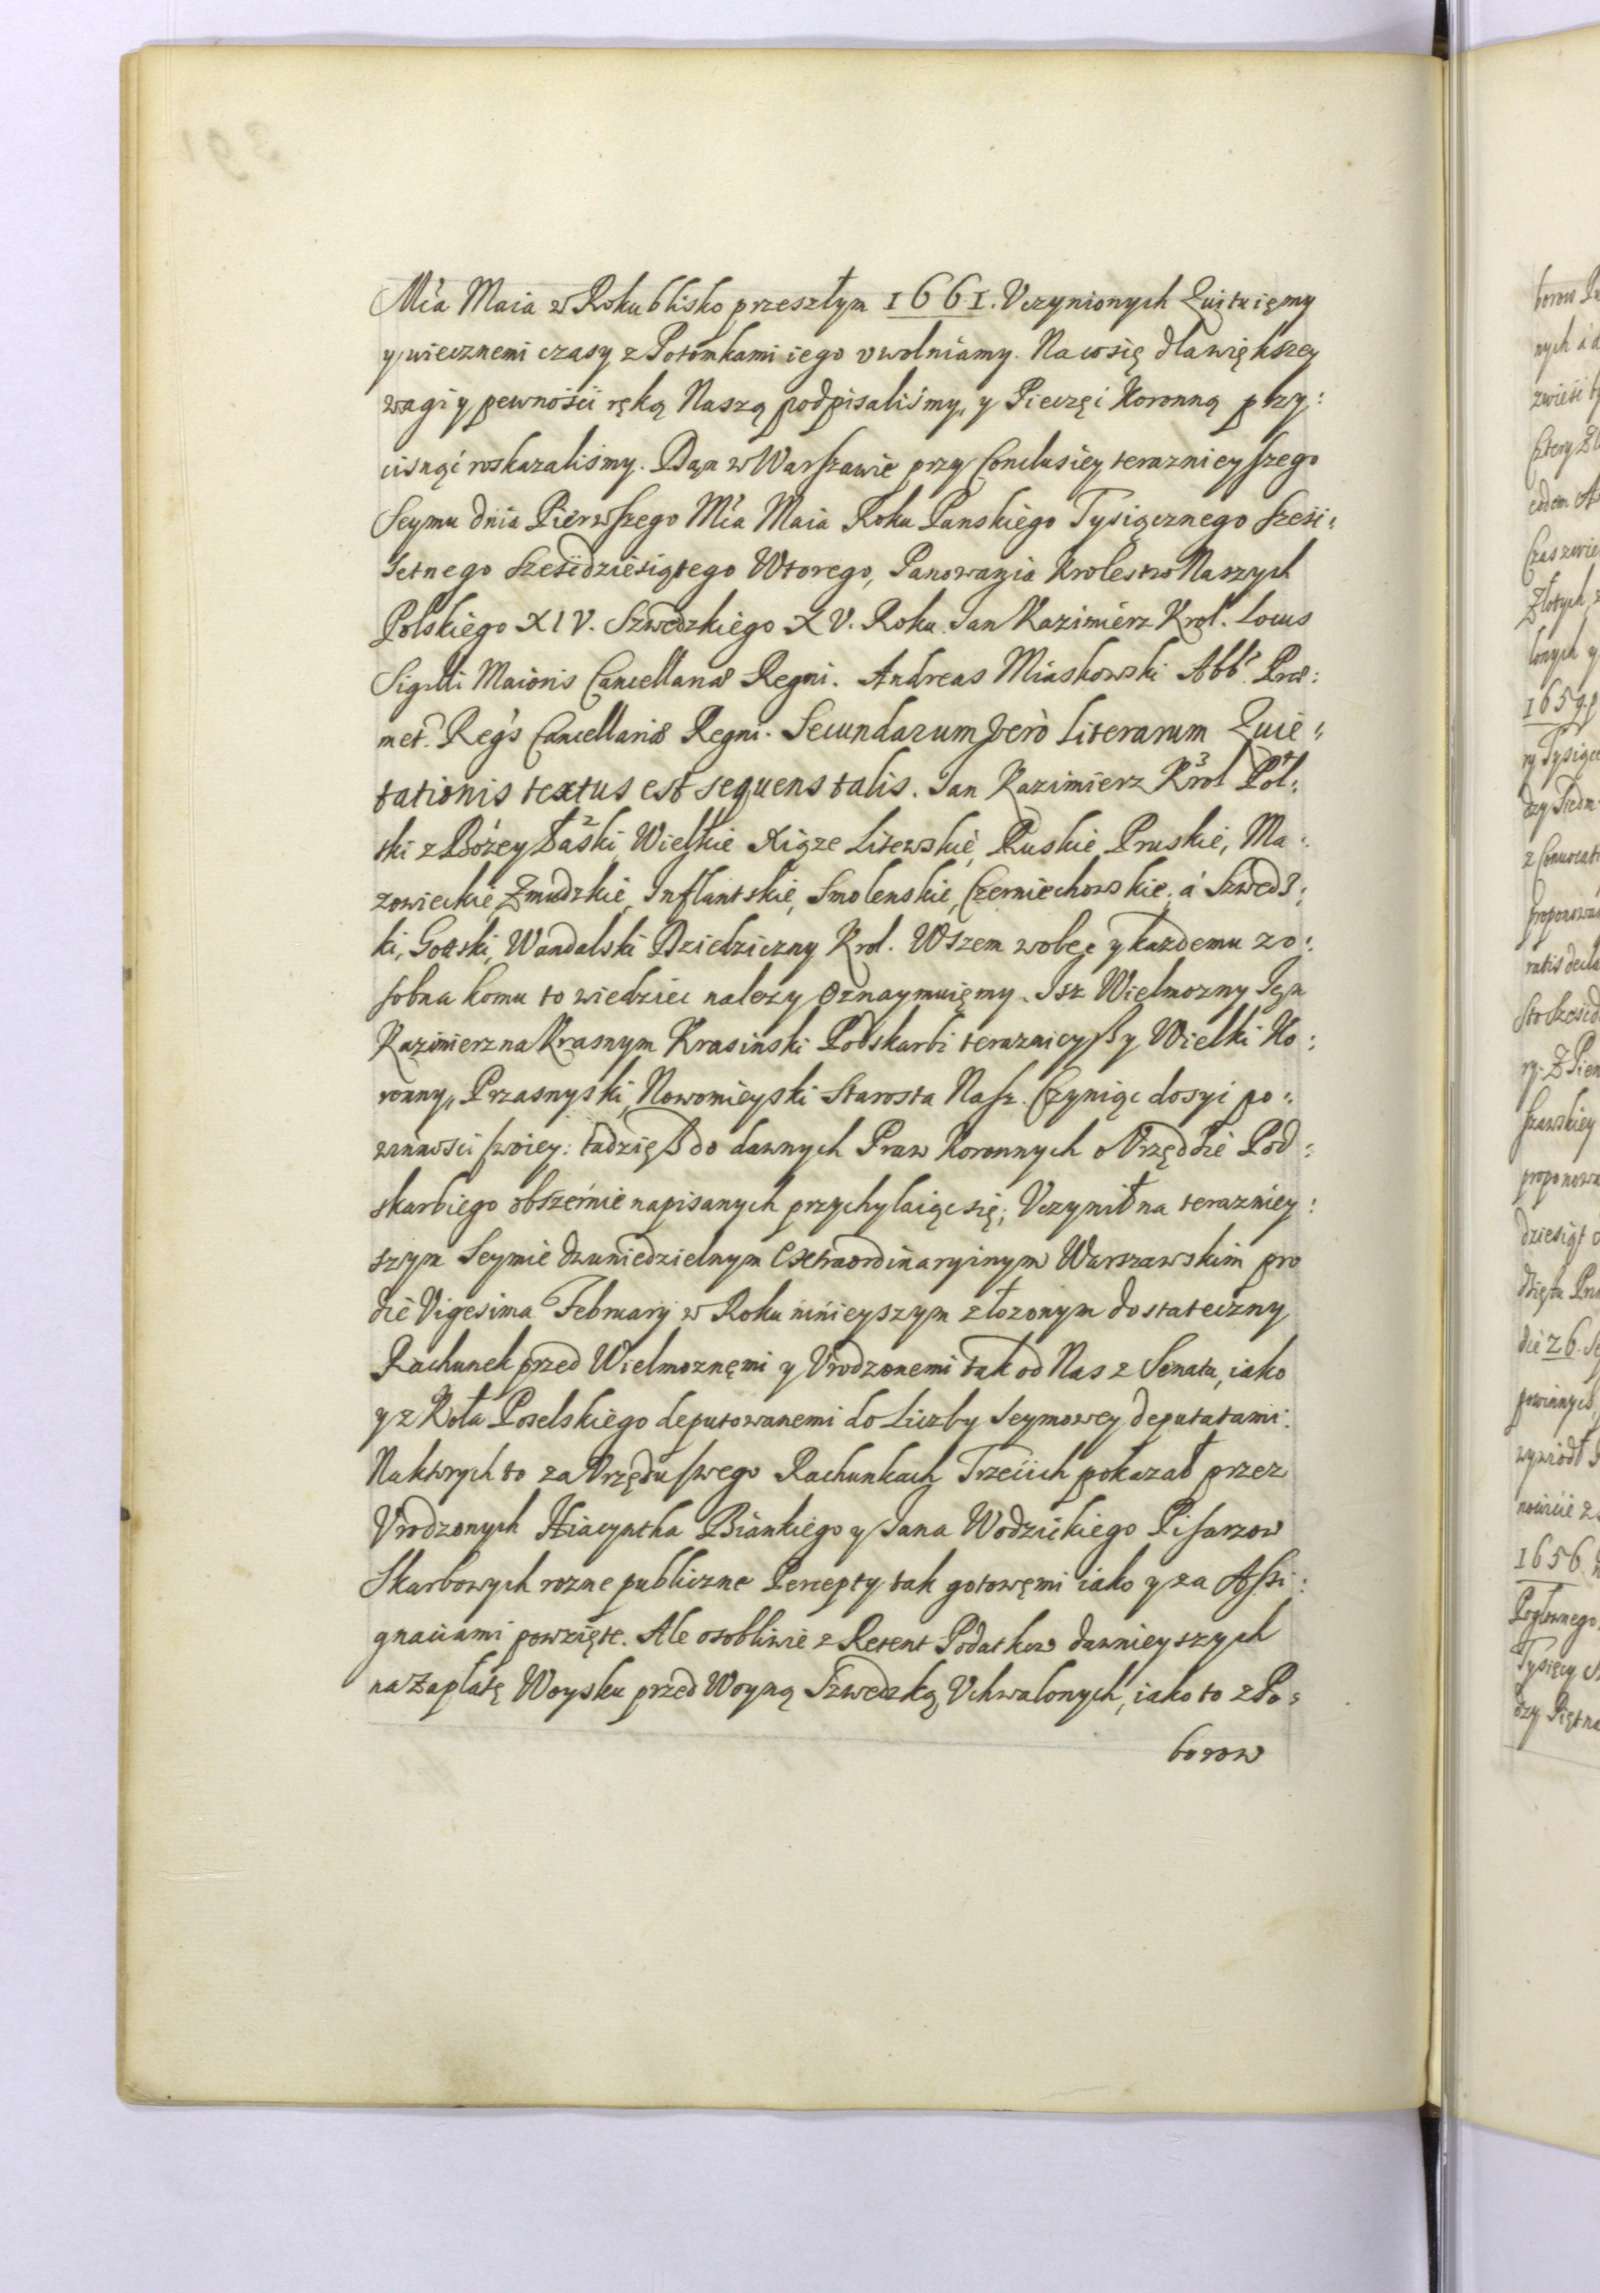 Mca Maia w Roku blisko przeszłym 1661. Vczynionych Quituięmy
y wiecznemi czasy z Potomkami iego vwolniamy. Na co się dla większey
wagi y pewności ręką Naszą podpisaliśmy, y Pieczęć Koronną przy:
cisnąć roskazaliśmy. Dąn w Warszawie przy Conclusiey teraznieyszego
Seymu dnia Pierwszego Mca Maia Roku Panskiego Tysiącznego sześć:
setnego sześćdziesiątego Wtorego, Panowania Krolestw Naszych
Polskiego XIV. Szwedzkiego XV. Roku. Jan Kazimierz Krol. Locus
Sigilli Maioris Cancellariae Regni. Andreas Miaskowski Abb: Prae:
met. Regs Cancellariae Regni. Secundarum verò Literarum Quie:
tationis textus est sequens talis. Jan Kazimierz Krol Pol:
ski z Bożey Łaski, Wielkie Xiąze Litewskie, Ruskie Pruskie, Ma:
zowieckie, Zmudzkie, Inflantskie, Smolenskie, Czerniechowskie, á Szwedz:
ki, Gottski, Wandalski Dziedziczny Krol. Wszem wobec y kazdemu zo:
sobna komu to wiedziec nalezy Oznaymuięmy. Isz Wielmozny Jęn
Kazimierz na Krasnym Krasiński Podskarbi teraznieyszy Wielki Ko:
ronny, Przasnyski, Nowomieyski Starosta Nasz. Czyniąc dosyć po:
winności swoiey: tudzięsz do dawnych Praw Koronnych o Vrzędzie Pod:
skarbiego obszernie napisanych przychylaiąc się; Vczynił na terazniey:
szym Seymie dwuniedzielnym Extraordinaryinym Warszawskim pro
die Vigesima Februarij w Roku ninieyszym złozonym dostateczny
Rachunek przed Wielmoznęmi y Vrodzonemi tak od Nas z Senatu, iako
y z Koła Poselskiego deputowanemi do Liczby Seymowey deputatami:
Na ktorych to za Vrzędu swego Rachunkach Trzecich pokazał przez
Vrodzonych Hiacyntha Biankiego y Jana Wodzickiego Pisarzow
Skarbowych rozne publiczne Percepty, tak gotowęmi iako y za Assi:
gnaciami powzięte. Ale osobliwie z Retent Podatkow dawnieyszych
na zapłatę Woysku przed Woyną Szwedzką, Vchwalonych, iako to z Po:
borow